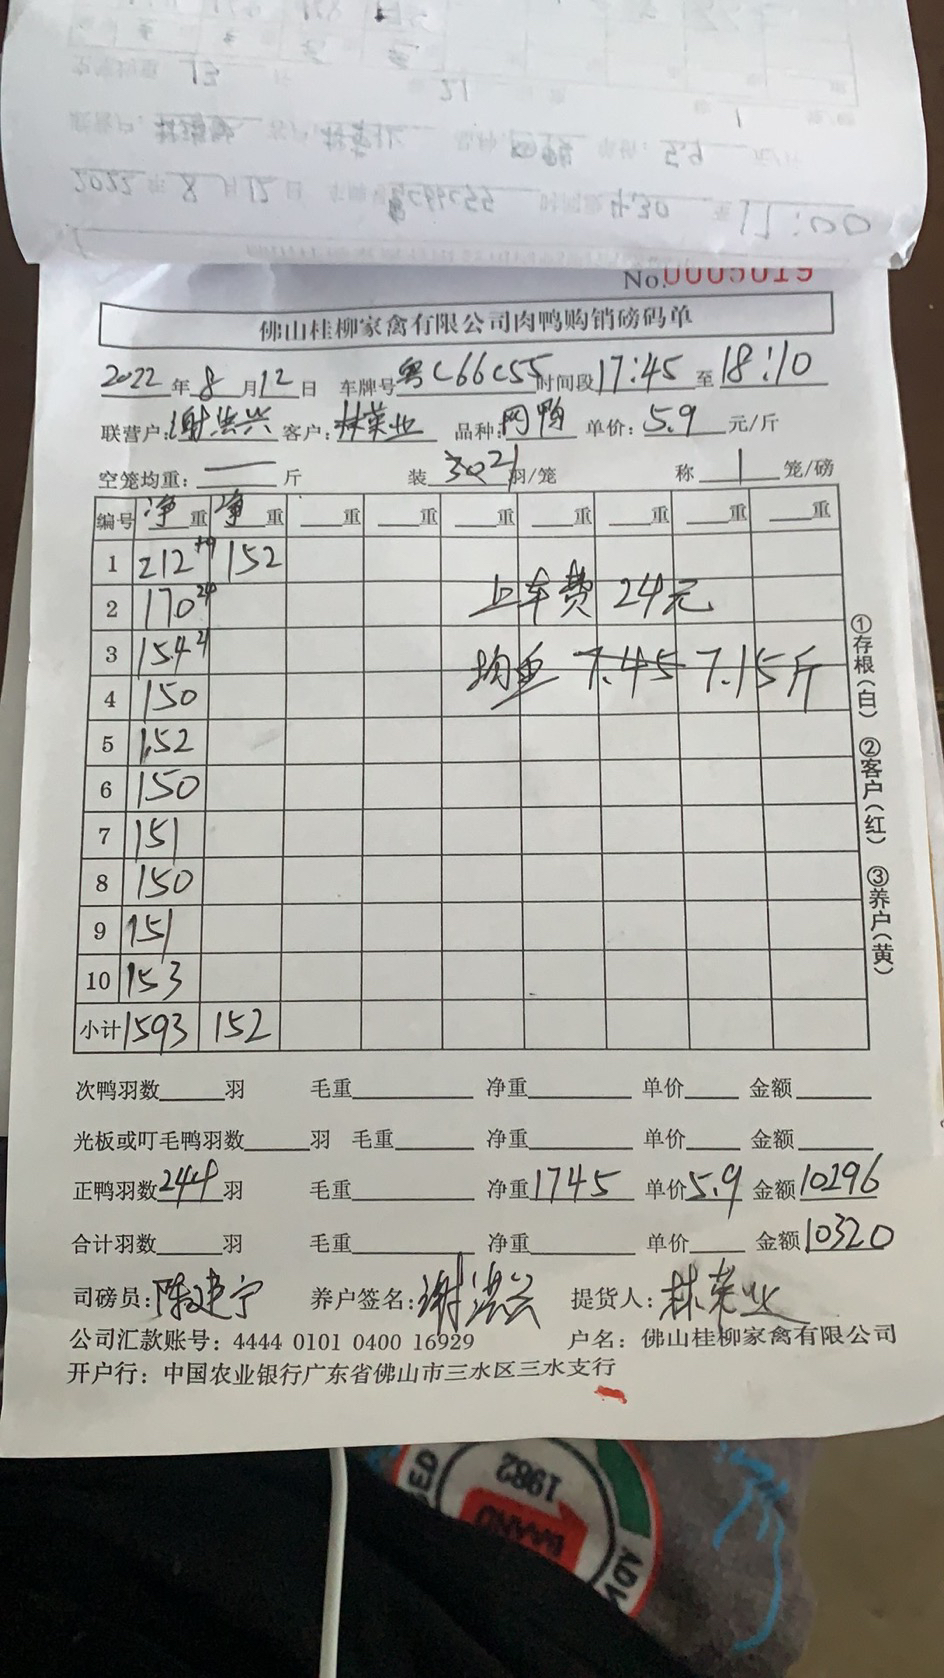 No.0005019
佛山桂柳家禽有限公司肉鸭购销磅码单
2022 年 8 月 12 日 车牌号 粤C66C55 时间段 17:45 至 18:10
联营户: 谢洪兴 客户: 林荣业 品种: 网鸭 单价: 5.9 元/斤
空笼均重: — 斤 装 21 羽/笼 称 1 笼/磅
编号 净重 净重 重 重 重 重 重 重 重
1 212 152
2 170 上车费 24元
3 154 均重 7.45 7.15斤
4 150
5 152
6 150
7 151
8 150
9 151
10 153
小计 1593 152
①存根(白) ②客户(红) ③养户(黄)
次鸭羽数 羽 毛重 净重 单价 金额
光板或叮毛鸭羽数 羽 毛重 净重 单价 金额
正鸭羽数 244 羽 毛重 净重 1745 单价 5.9 金额 10296
合计羽数 羽 毛重 净重 单价 金额 10320
司磅员: 陈建宁 养户签名: 谢洪兴 提货人: 林荣业
公司汇款账号: 4444 0101 0400 16929 户名: 佛山桂柳家禽有限公司
开户行: 中国农业银行广东省佛山市三水区三水支行
1982